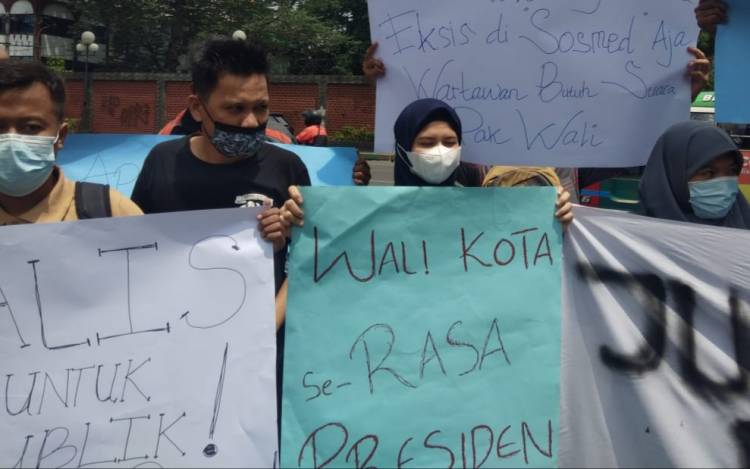 Eksis di Sosmed Aja
Wartawan Butuh Suara
Pak Wali
ALIS
UNTUK
UBLIK!
WALI KOTA
se-RASA
PRESIDEN
JU